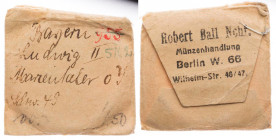 Bayern
Ludwig II.
Marientaler o J
50
Robert Ball Nchf.
Münzenhandlung
Berlin W. 66
Wilhelm-Str. 46/47.